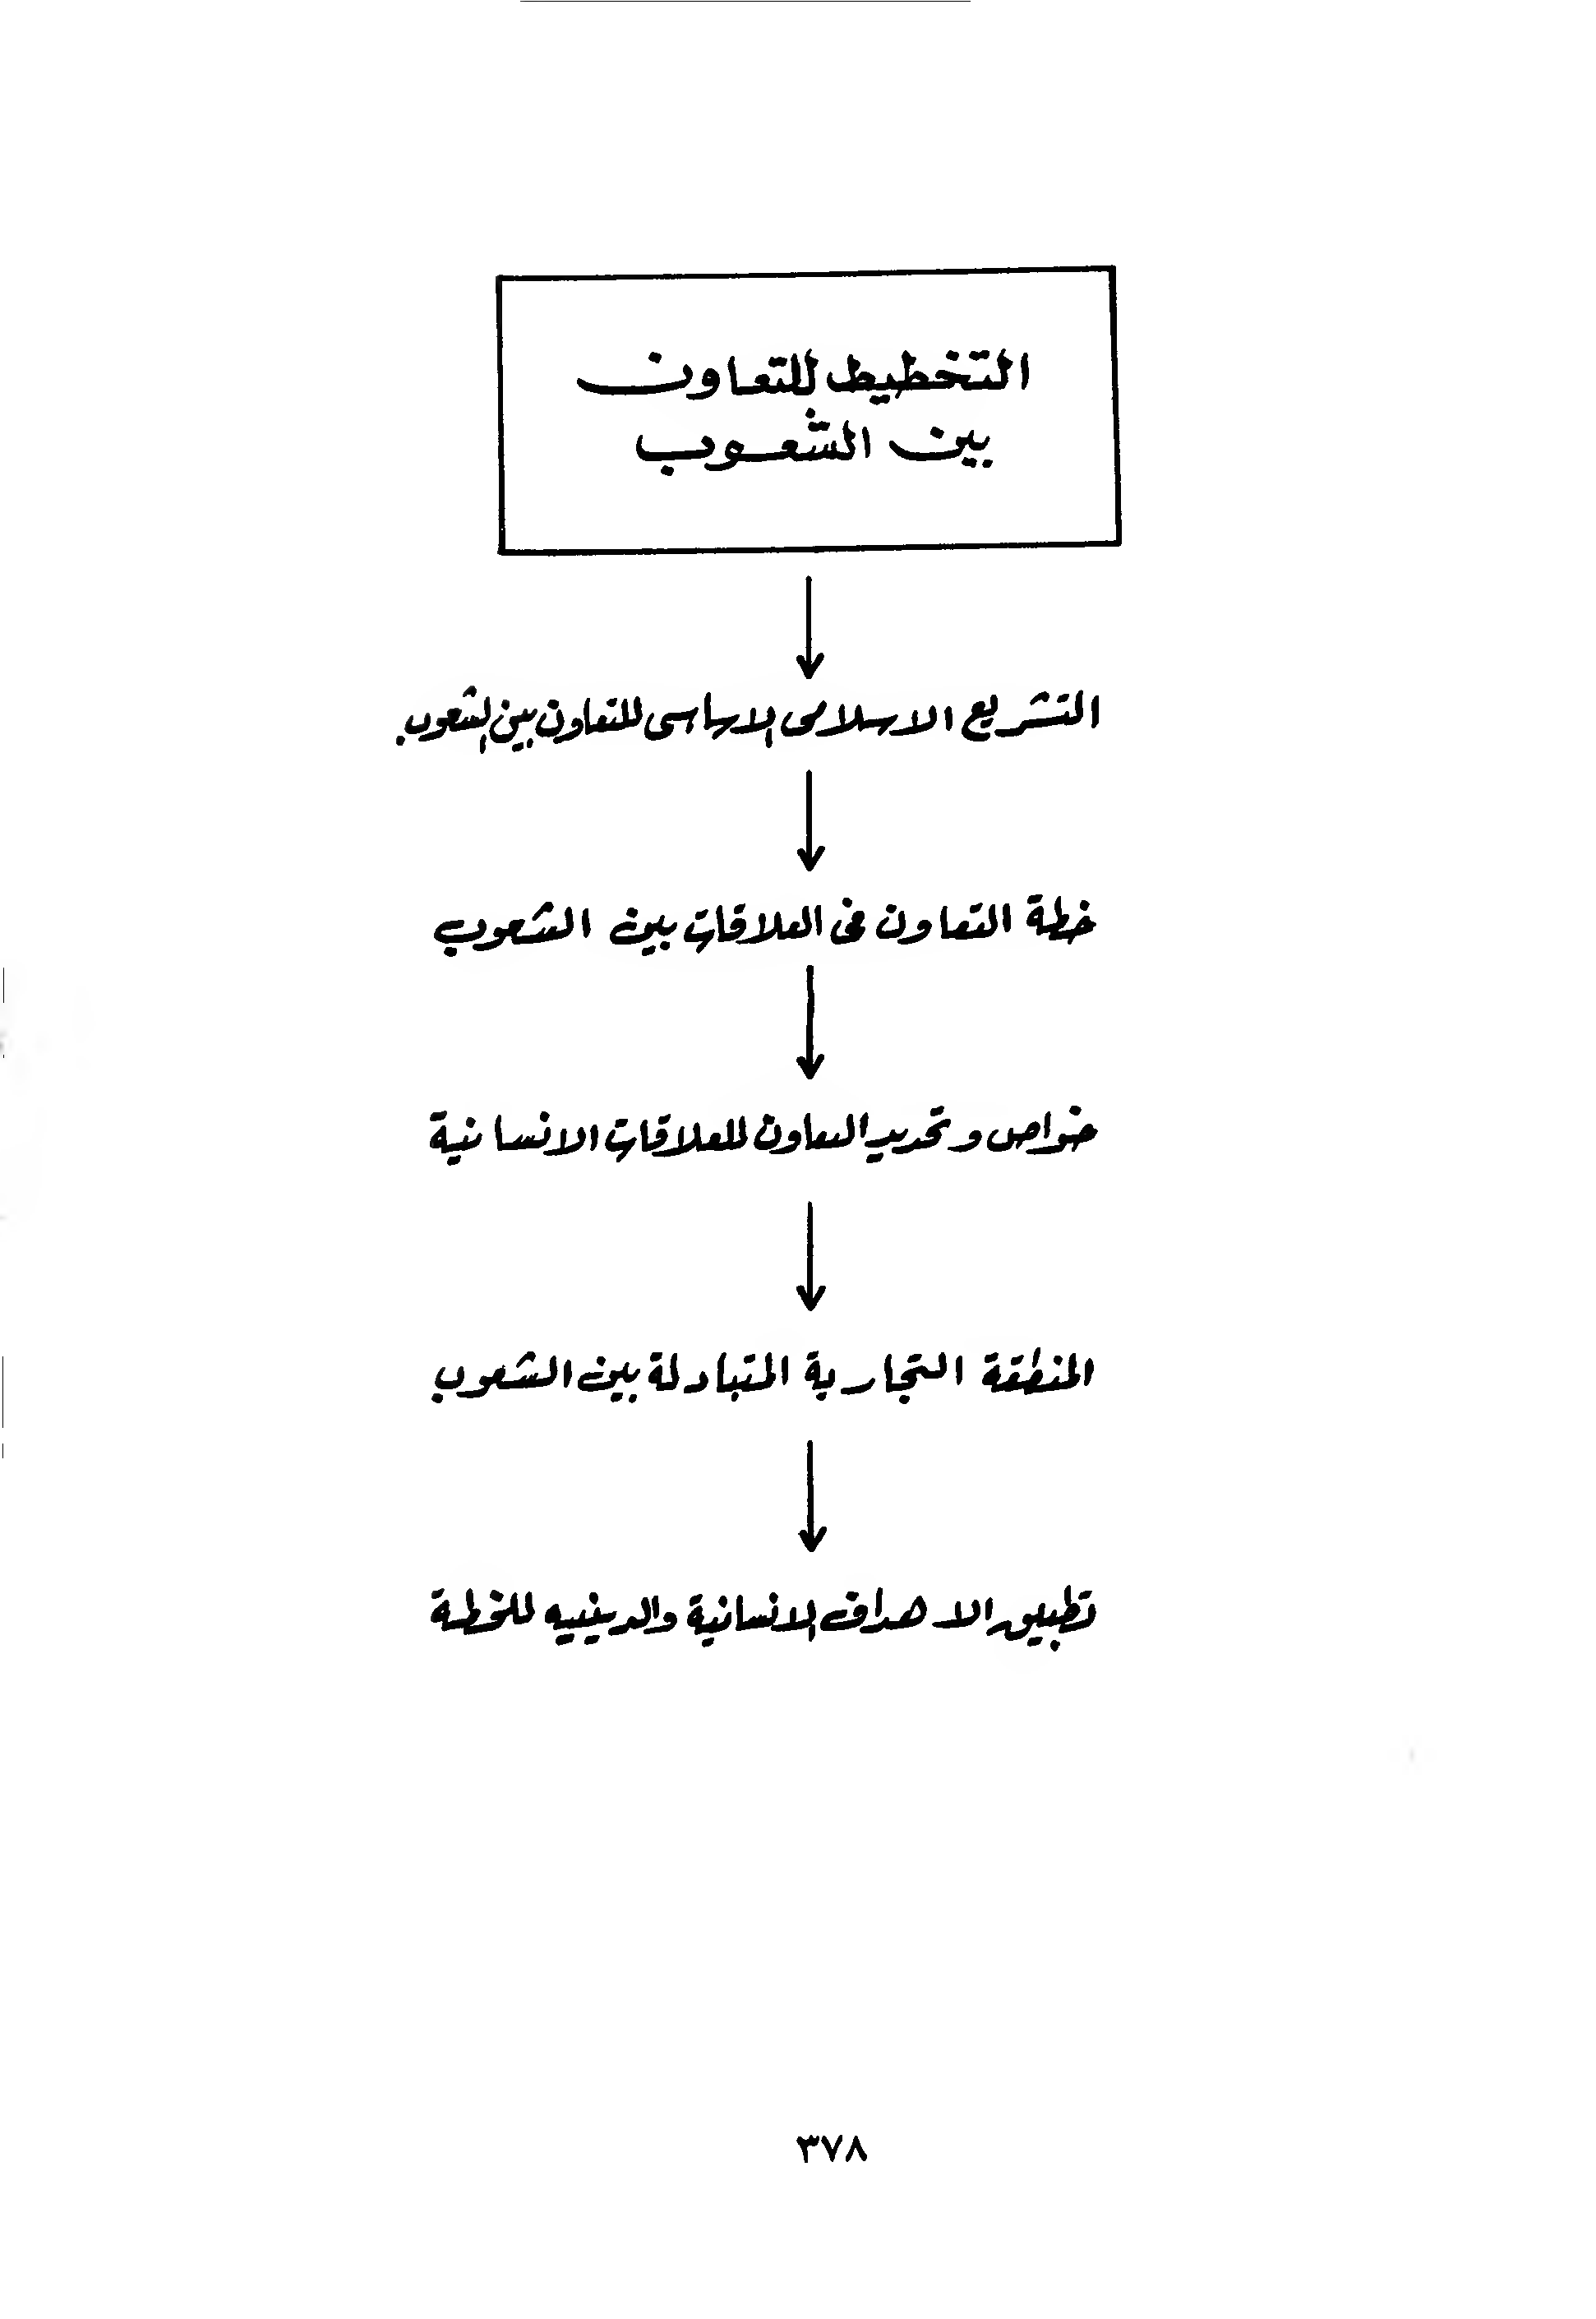 التخطيط للتعاون
بين الشعوب
التشريع الاسلامى الاساسى للتعاون بين الشعوب.
خطة التعاون فى العلاقات بين الشعوب
خواص وتحديد التعاون للعلاقات الانسانية
المنطقة التجارية المتبادلة بين الشعوب
تطبيق الاهداف الانسانية والدينيه للخطة
٣٧٨